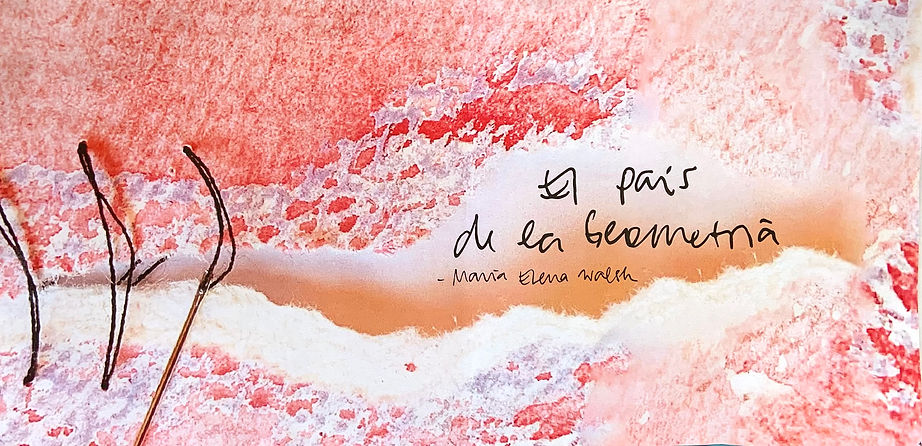 El pais
de la Geometria
- Maria Elena Walsh